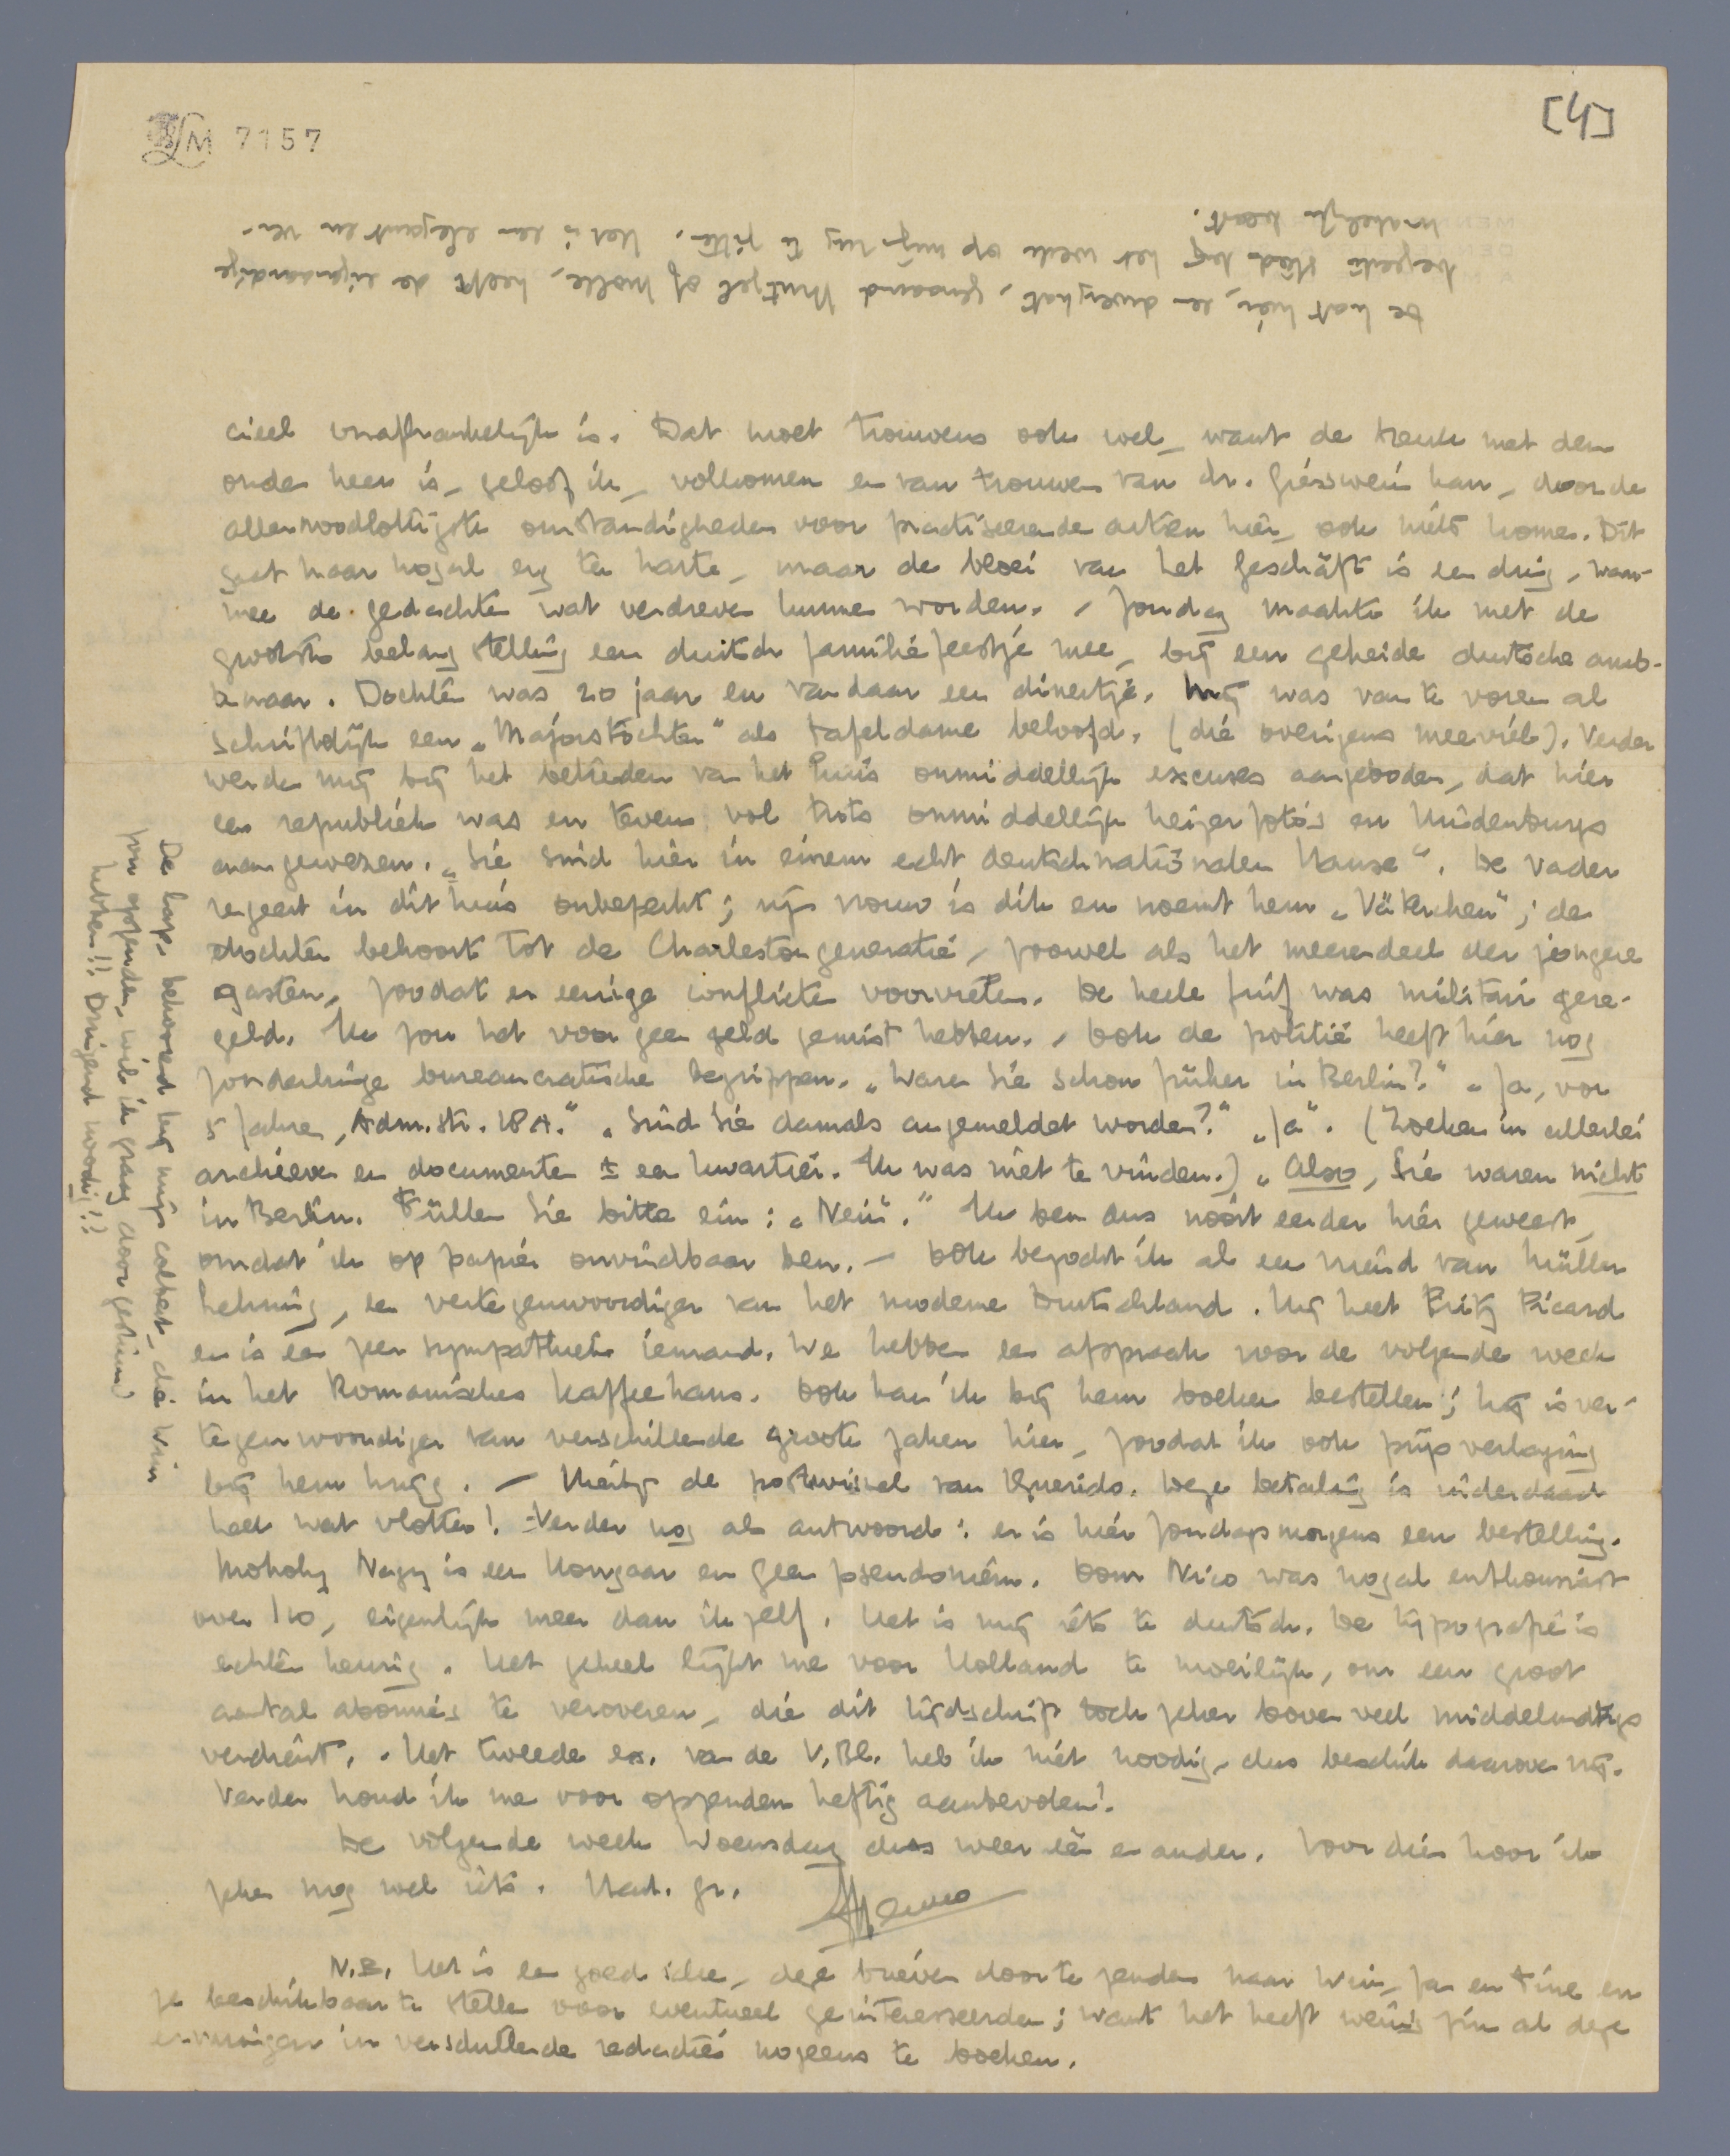 LM 7157
[4]
De kat hier, een dwergkat, genaamd Mutzel of Molle, heeft de eigenaardige
begeerte steeds bij het werk op mijn rug te zitten. Het is een elegant en ver-
makelijk beest.
cieel onafhankelijk is. Dat moet trouwens ook wel, want de breuk met den
ouden heer is, geloof ik, volkomen en van trouwen van dr. Giesswein kan, door de
allernoodlottigste omstandigheden voor practiseerende artsen hier, ook niets komen. Dit
gaat haar nogal erg ter harte, maar de bloei van het Geschäft is een ding, waar-
mee de gedachten wat verdreven kunnen worden. - Zondag maakte ik met de
grootste belangstelling een duitsch familiefeestje mee, bij een geheide duitsche amb-
tenaar. Dochter was 20 jaar en vandaar een dinertje. Mij was van te voren al
schriftelijk een „Majorstochter" als tafeldame beloofd. (die overigens meeviel). Verder
werden mij bij het betreden van het huis onmiddellijk excuses aangeboden, dat hier
een republiek was en tevens vol trots onmiddellijk keizerfoto's en Hindenburgs
aangewezen. „Sie sind hier in einem echt deutschnationalen Hause". De vader
regeert in dit huis onbeperkt; zijn vrouw is dik en noemt hem „Väterchen"; de
dochter behoort tot de Charlestongeneratie, zoowel als het meerendeel der jongere
gasten, zoodat er eenige conflicten voorvielen. De heele fuif was militair gere-
geld. Ik zou het voor geen geld gemist hebben. - Ook de politie heeft hier nog
zonderlinge bureaucratische begrippen. „Waren Sie schon früher in Berlin?" „Ja, vor
5 Jahren, Adm. str. 18 A." „Sind Sie damals angemeldet worden?" „Ja". (Zoeken in allerlei
archieven en documenten ± een kwartier. Ik was niet te vinden.) „Also, Sie waren nicht
in Berlin. Füllen Sie bitte ein: „Nein"." Ik ben dus nooit eerder hier geweest,
omdat ik op papier onvindbaar ben. - Ook bezocht ik al een vriend van Müller
Lehning, een vertegenwoordiger van het moderne Duitschland. Hij heet Fritz Picard
en is een zeer sympathiek iemand. We hebben een afspraak voor de volgende week
in het Romanisches Kaffeehaus. Ook kan ik bij hem boeken bestellen; hij is ver-
tegenwoordiger van verschillende groote zaken hier, zoodat ik ook prijsverlaging
bij hem krijg. - Hierbij de postwissel van Querido. Deze betaling is inderdaad
heel wat vlotter! - Verder nog als antwoord: er is hier Zondagsmorgens een bestelling.
Moholy Nagy is een Hongaar en geen pseudoniem. Oom Nico was nogal enthousiast
over I 10, eigenlijk meer dan ik zelf. Het is mij iets te duitsch. De typografie is
echter keurig. Het geheel lijkt me voor Holland te moeilijk, om een groot
aantal abonnés te veroveren, die dit tijdschrift toch zeker boven veel middelmatigs
verdient. - Het tweede ex. van de V. Bl. heb ik niet noodig, dus beschik daarover vrij.
Verder houd ik me voor opzenden heftig aanbevolen!
De volgende week Woensdag dus weer een en ander. Voor dien hoor ik
zeker nog wel iets. Hart. gr.
Menno
N.B. Het is een goed idee, deze brieven door te zenden naar Wim, Ja en Tine en
ze beschikbaar te stellen voor eventueel geinteresseerden; want het heeft weinig zin al deze
ervaringen in verschillende redacties nogeens te boeken.
De kaps behoorend bij mijn colbert, die Wim
zou opzenden, wil ik graag doorgestuurd
hebben!! Dringend noodig!!